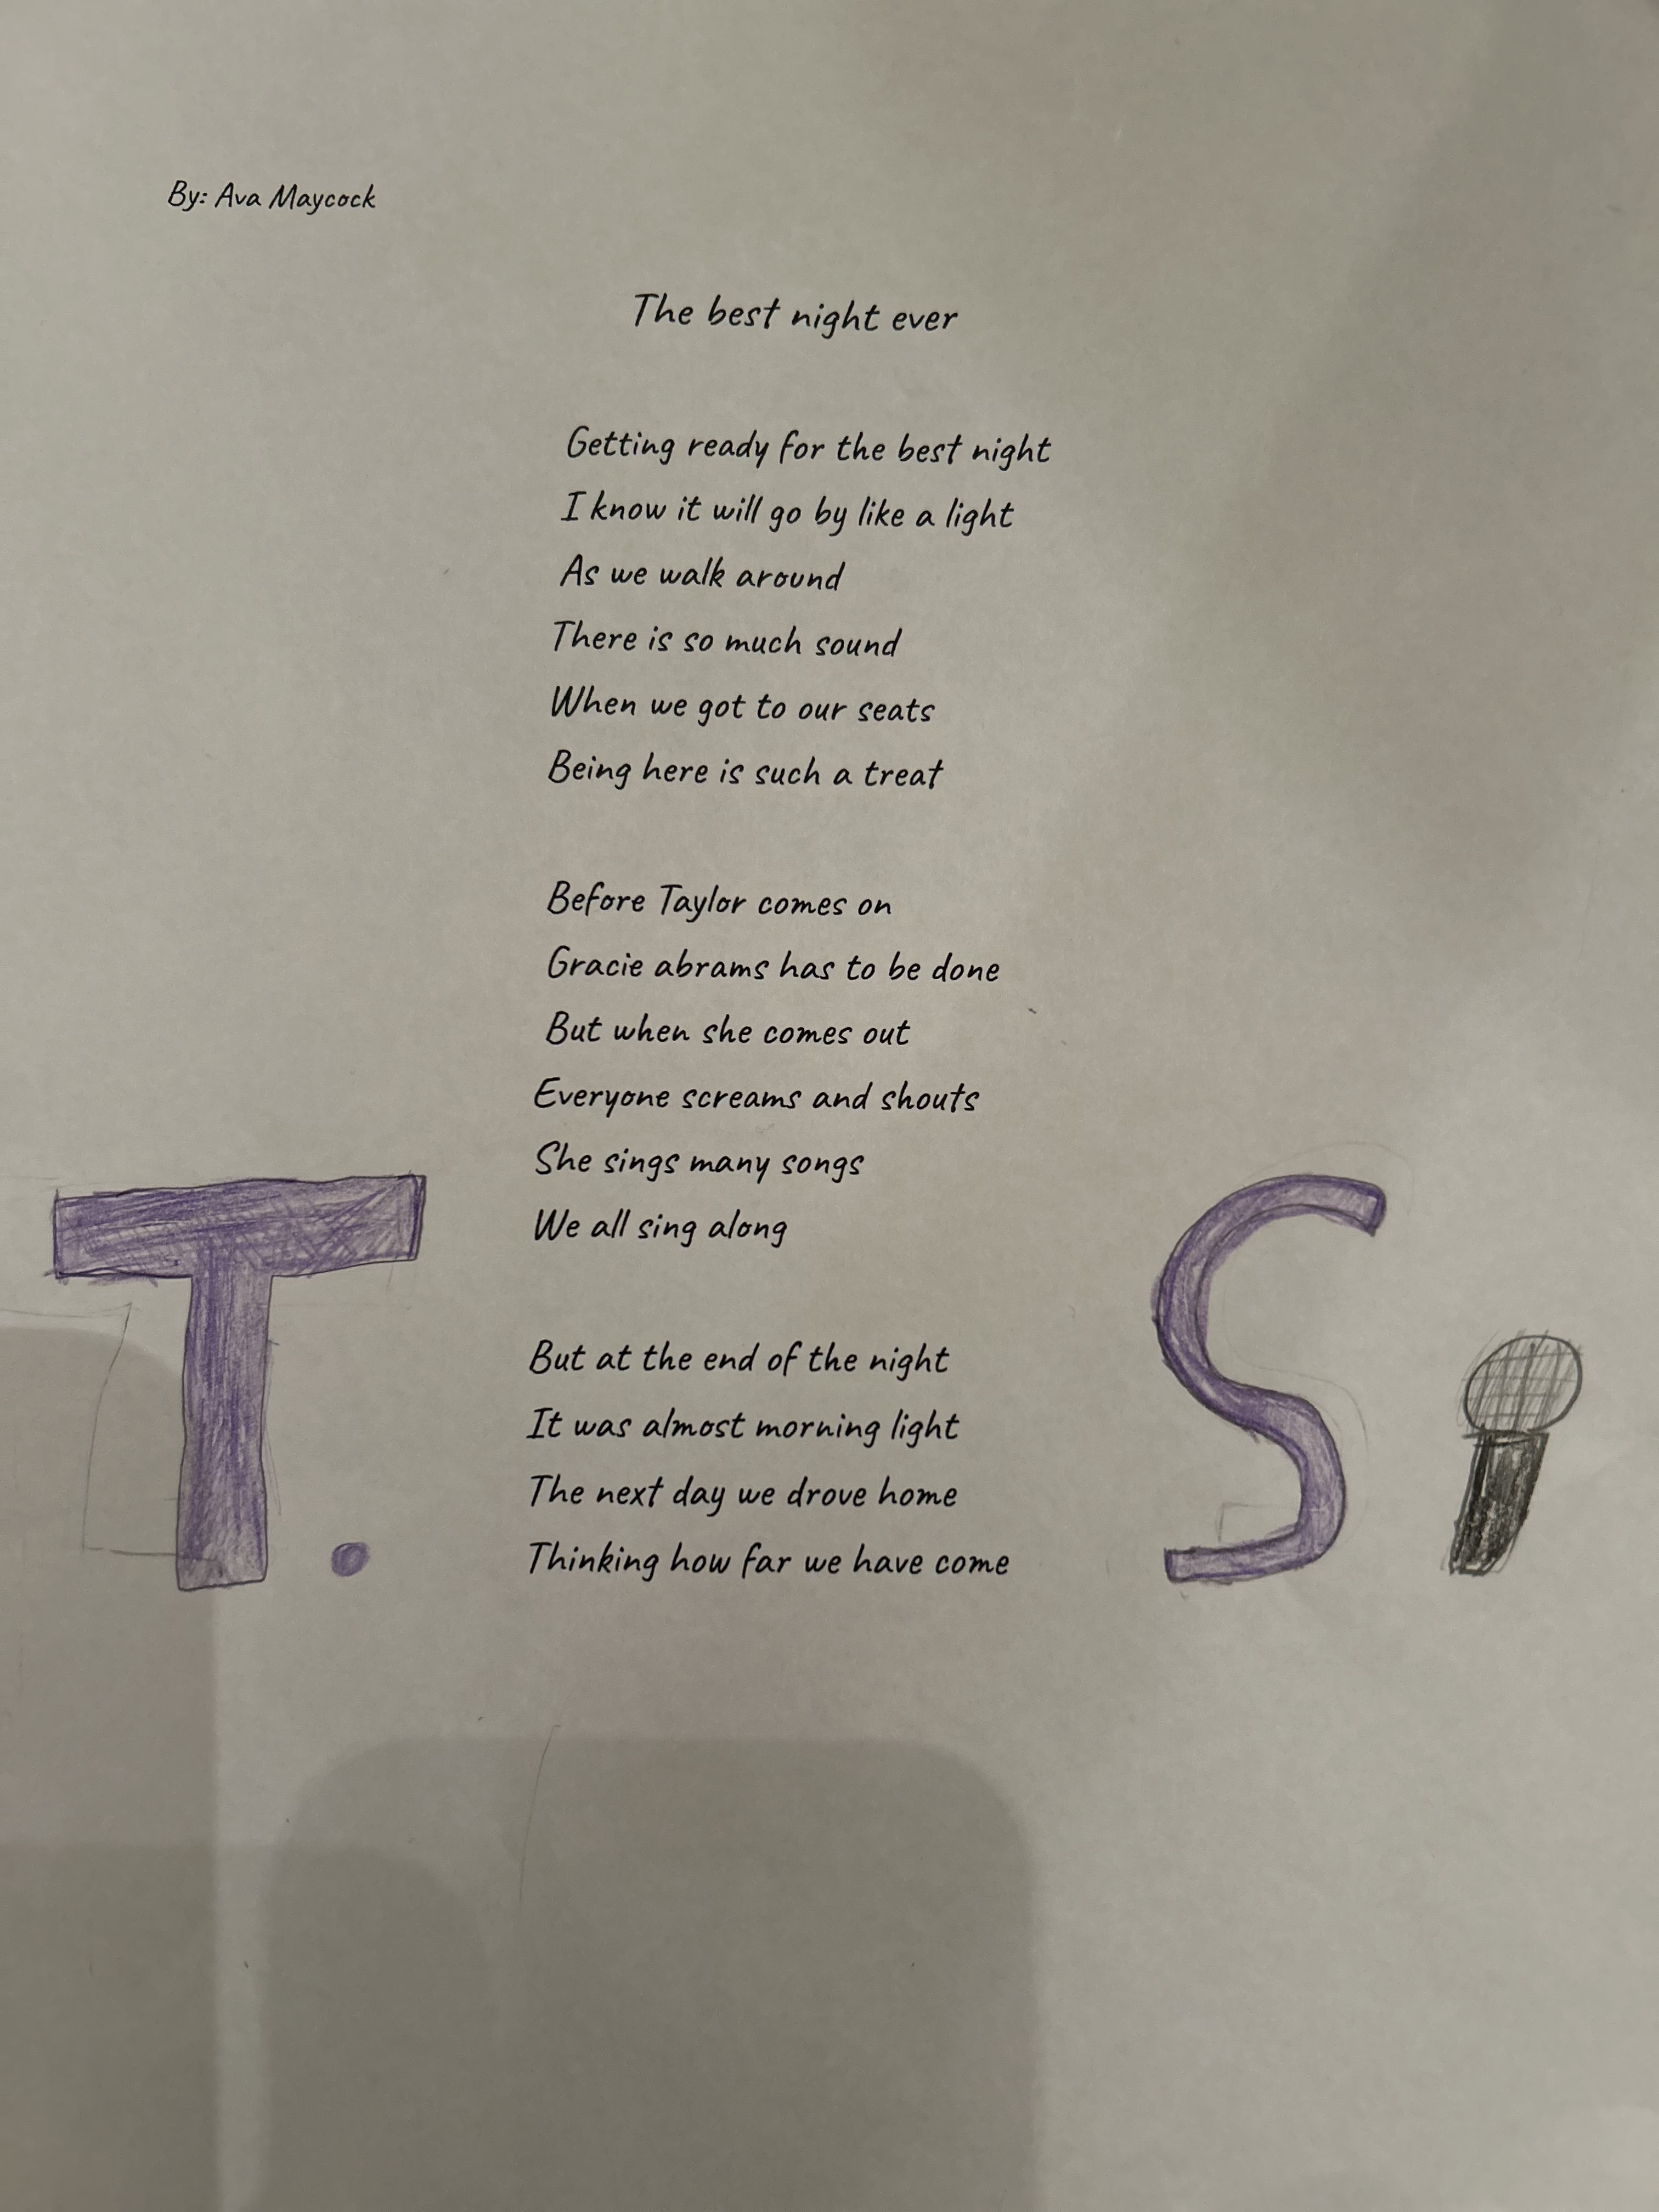 By: Ava Maycock
The best night ever
Getting ready for the best night
I know it will go by like a light
As we walk around
There is so much sound
When we got to our seats
Being here is such a treat
Before Taylor comes on
Gracie abrams has to be done
But when she comes out
Everyone screams and shouts
She sings many songs
We all sing along
But at the end of the night
It was almost morning light
The next day we drove home
Thinking how far we have come
T. S